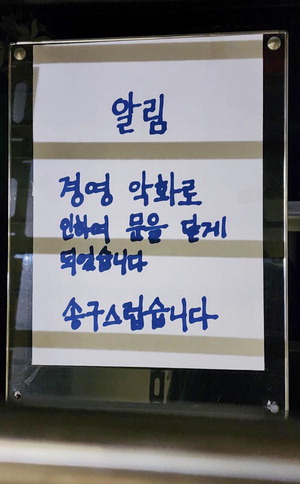 알림
경영 악화로
인하여 문을 닫게
되었습니다
송구스럽습니다